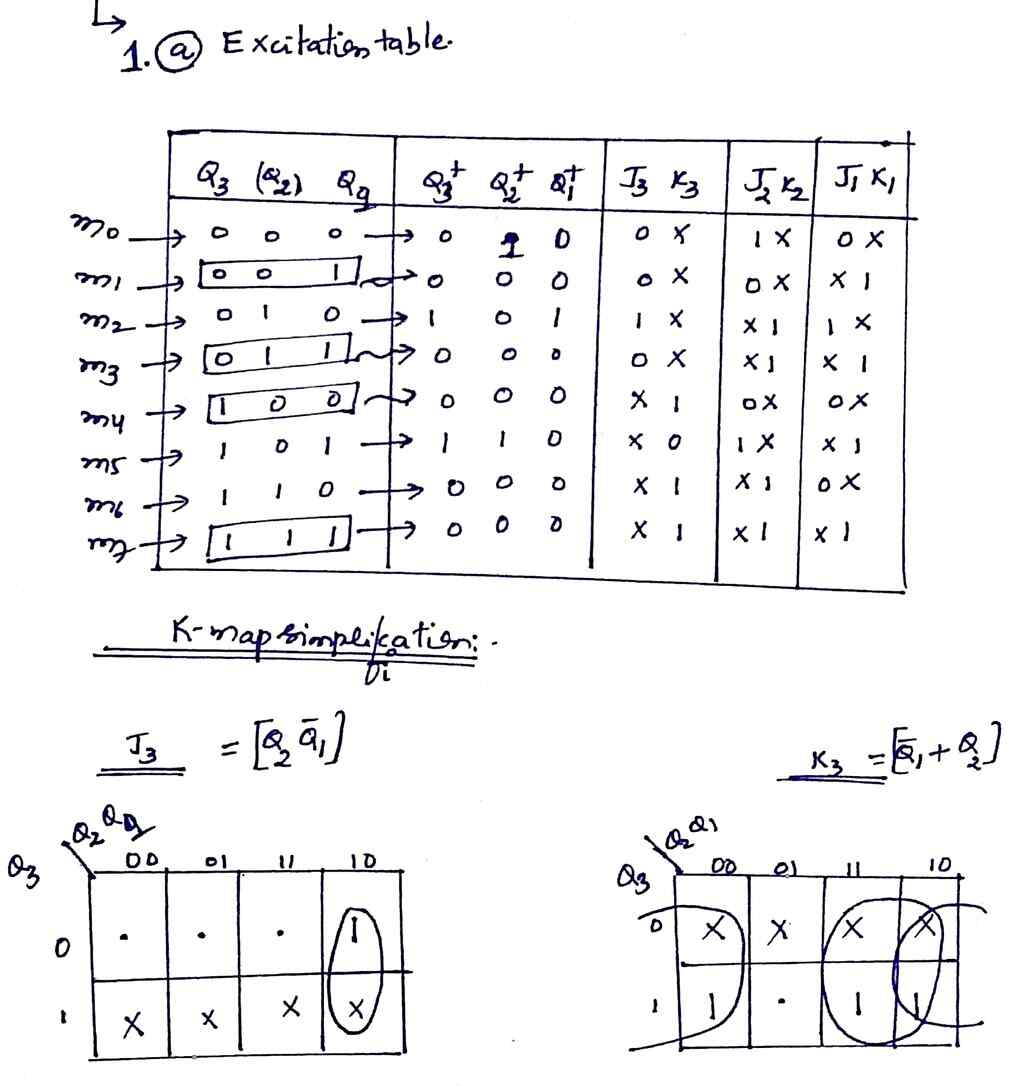 1. ⓐ Excitation table.
Q₃ (Q₂) Q₁ Q₃⁺ Q₂⁺ Q₁⁺ J₃ K₃ J₂ K₂ J₁ K₁
m0 → 0 0 0 → 0 1 0 0 X 1 X 0 X
m1 → 0 0 1 → 0 0 0 0 X 0 X X 1
m2 → 0 1 0 → 1 0 1 1 X X 1 1 X
m3 → 0 1 1 → 0 0 0 0 X X 1 X 1
m4 → 1 0 0 → 0 0 0 X 1 0 X 0 X
m5 → 1 0 1 → 1 1 0 X 0 1 X X 1
m6 → 1 1 0 → 0 0 0 X 1 X 1 0 X
m7 → 1 1 1 → 0 0 0 X 1 X 1 X 1
K-map simplification:-
J₃ = [Q₂ Q̄₁]
K₃ = [Q̄₁ + Q₂]
Q₂ Q₁
Q₃ 00 01 11 10
0 . . . 1
1 X X X X
Q₂ Q₁
Q₃ 00 01 11 10
0 X X X X
1 1 . 1 1